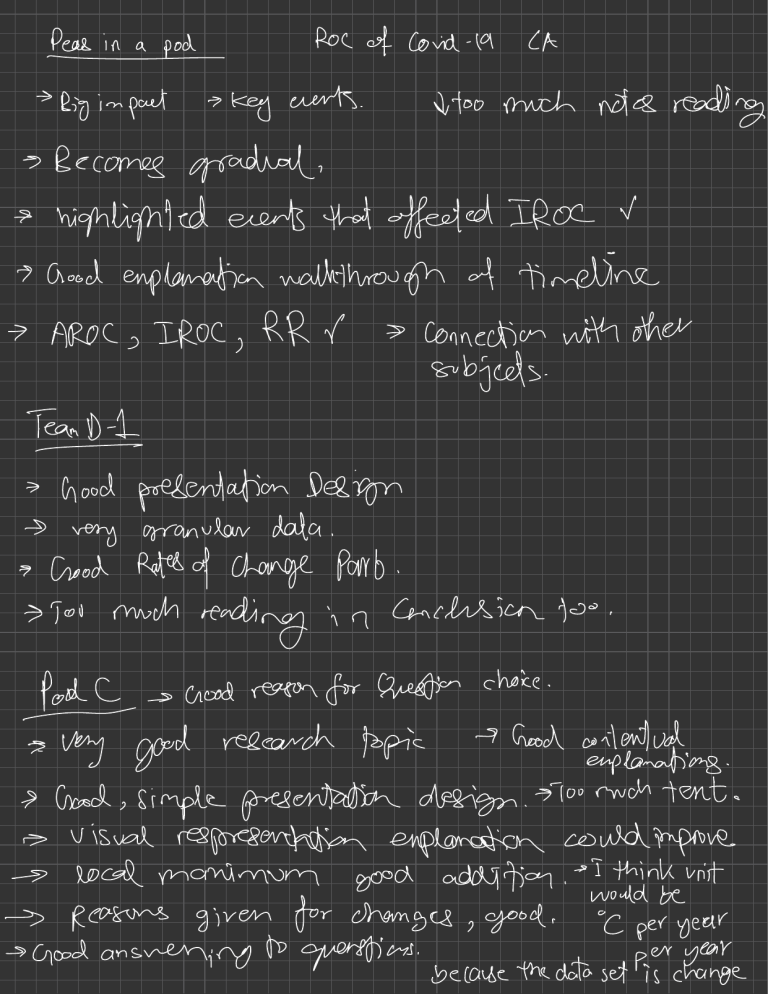 Peas in a pod ROC of Covid-19 CA
→ Big impact → Key events. ↓ too much notes reading
→ Becomes gradual,
→ highlighted events that affected IROC ✓
→ Good explanation walkthrough of timeline
→ AROC, IROC, RR ✓ → Connection with other
subjects.
Team D-1
→ Good presentation Design
→ very granular data.
→ Good Rates of Change Part.
→ Too much reading in Conclusion too.
Pod C → Good reason for Question choice.
→ Very good research topic → Good contextual
explanations.
→ Good, simple presentation design. → Too much text.
→ Visual respresentation explanation could improve
→ local maximum good addition. → I think unit
would be
→ Reasons given for changes, good. °C per year
→ Good answering to questions. per year
because the data set is change